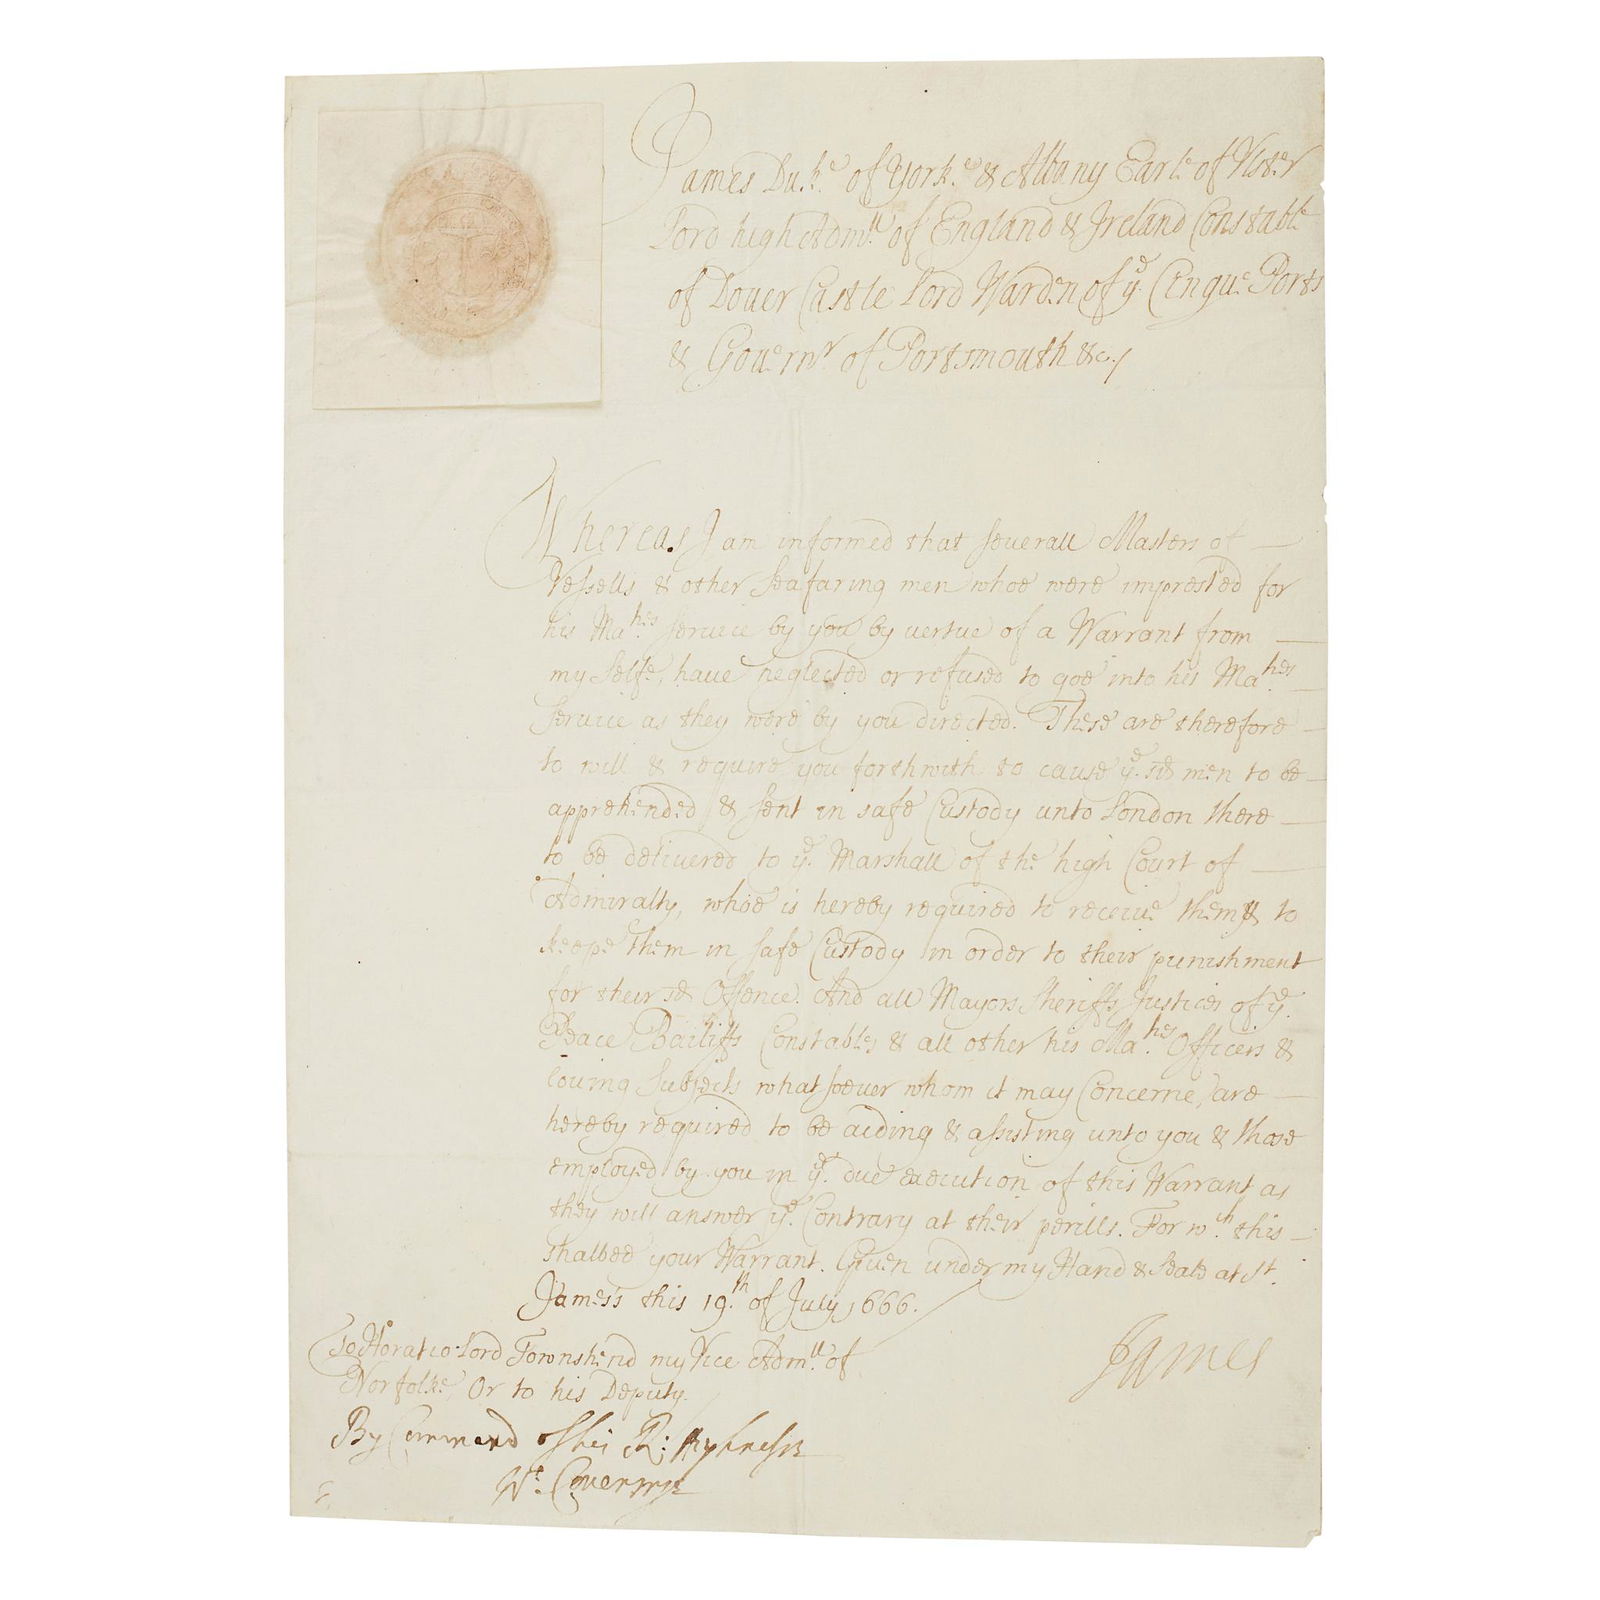 James Duke of Yorke & Albany Earle of Vlster
Lord high Adm:ll of England & Ireland Constable
of Douer Castle Lord Warden of ye Cinque Ports
& Gouernr of Portsmouth &c/
Whereas I am informed that seuerall Masters of
Vessells & other Seafaring men whoe were imprested for
his Ma:ties seruice by you by vertue of a Warrant from
my Selfe, haue neglected or refused to goe into his Ma:ties
seruice as they were by you directed. These are therefore
to will & require you forthwith to cause ye sd men to be
apprehended & sent in safe Custody unto London there
to be deliuered to ye Marshall of the high Court of
Admiralty, whoe is hereby required to receiue them & to
keepe them in safe Custody in order to their punishment
for their sd Offence. And all Mayors Sheriffs Justices of ye
Peace Bailiffs Constables & all other his Ma:ties Officers &
louing Subjects whatsoeuer whom it may Concerne, are
hereby required to be aiding & assisting unto you & those
employed by you in ye due execution of this Warrant as
they will answer ye Contrary at their perills. For wch this
shalbee your Warrant. Giuen under my Hand & Seale at St
James's this 19th of July 1666.
James
To Horatio Lord Townshend my Vice Adm:ll of
Norfolke, Or to his Deputy.
By Command of his R: Highnesse
W: Couentrye